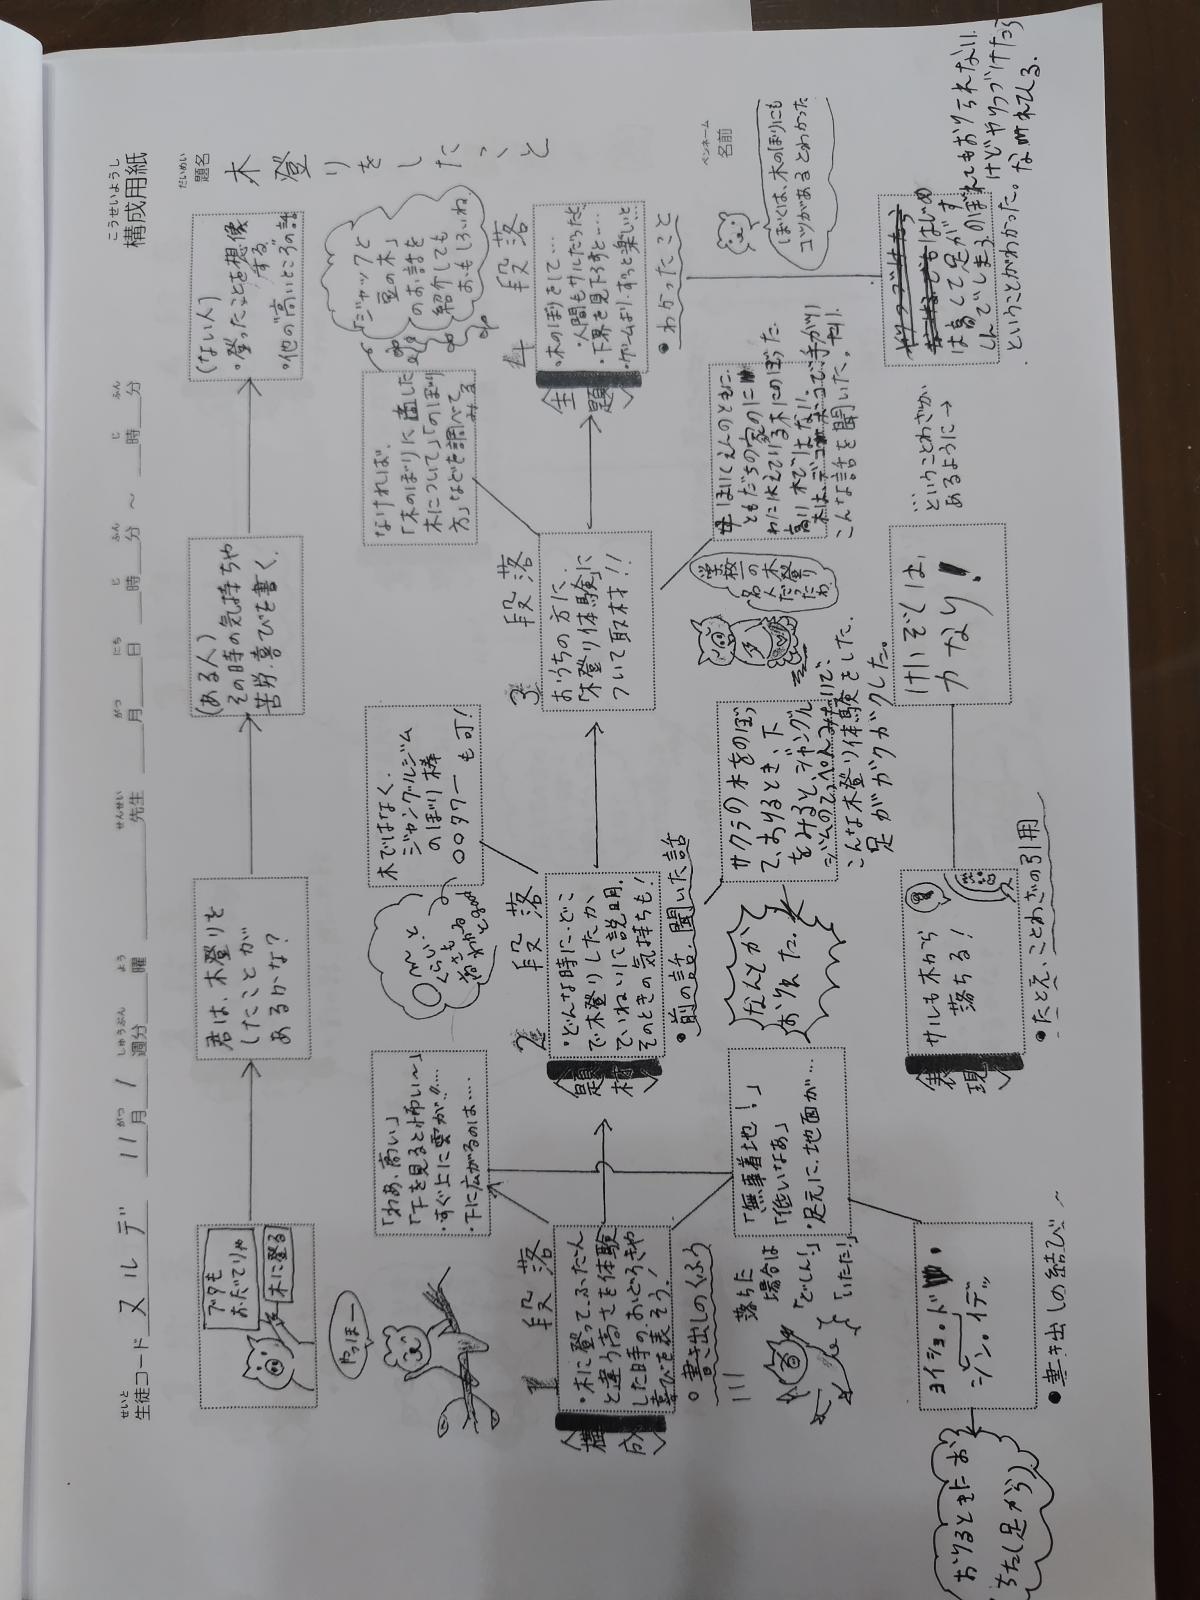 構成用紙
こうせいようし
題名
だいめい
木登りをしたこと
生徒コード ヌルデ 11月1週分 曜 先生 月 日 時 分 ~ 時 分
せいと がつ しゅうぶん よう せんせい がつ にち じ ふん じ ふん
ペンネーム
名前
ブタも
おだてりゃ
木に登る
君は、木登りを
したことが
あるかな?
(ある人)
その時の気持ちや
苦労・喜びを書く。
(ない人)
・登ったことを想像
する
・他の"高いところ"の話
やっほー
「わあ、高い」
「下を見ると怖い~」
・すぐ上に雲が!!‥‥
・下に広がるのは‥‥
木ではなく、
ジャングルジム
のぼり棒
〇〇タワー も可!
〇m~と
くらい?
なければ、
「木のぼりに適した
木について」「のぼり
方」などを調べて
みる
「ジャックと
豆の木」
のお話を
紹介しても
おもしろいね
1 段落
〈構成〉
・木に登って、ふだん
と違う高さを体験
した時の、おどろきや
喜びを表そう!
・書き出しのくふう
2 段落
〈題材〉
・どんな時に、どこ
で木登りしたか、
ていねいに説明。
そのときの気持ちも!
・前の話、聞いた話
3 段落
おうちの方に、
「木登り体験」に
ついて取材!!
4 段落
〈主題〉
・木のぼりをして‥‥
・人間もサルだったと‥
・下界を見下ろすと‥‥
・ゲームより、ずっと楽しいと‥
・わかったこと
落ちた
場合は
「どしん!」
「いたた!」
「無事着地!」
「低いなあ」
・足元に、地面が‥‥
なんとか
おりれた。
サクラの木をのぼっ
て、おりるとき、下
をみると、ジャングル
ジムのてっぺんみたいで、
こんな木登り体験をした。
足がガクガクした。
学校一の木登り名人だったわ
ほいくえんのともに、
ともだちの家のに
わにはえている木にのぼった。
高い木ではない。
こんな話を聞いた。
ぼくは、木のぼりにも
コツがあるとわかった
ヨイショ。ド
ジン。イデッ
・書き出しの結び
おりるときにお
ちた(足から)
〈表現〉
サルも木から
落ちる!
・たとえ、ことわざの引用
けいぞくは、
力なり!
ということわざが
あるように→
はじめ
は高くて足がす
くんでしまうのぼれてもおりられない。
けどやりつづけたら
ということがわかった。なれている。